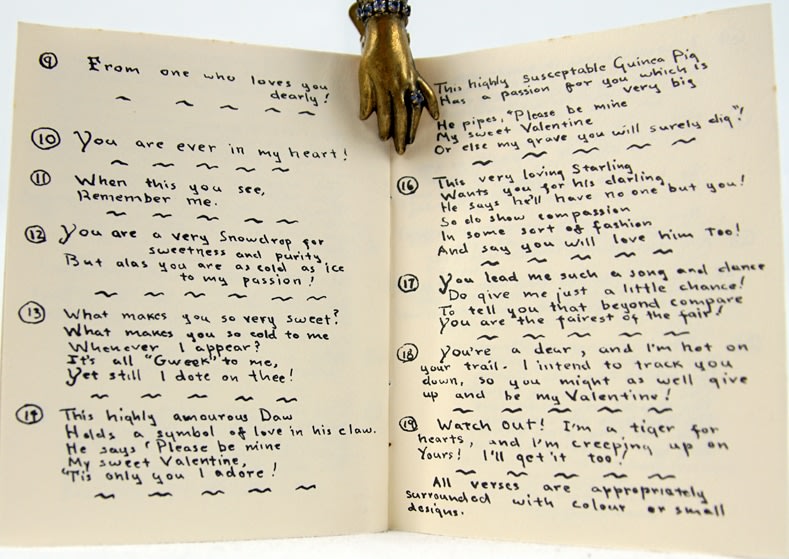 ⑨ From one who loves you
dearly!
⑩ You are ever in my heart!
⑪ When this you see,
Remember me.
⑫ You are a very Snowdrop for
sweetness and purity
But alas you are as cold as ice
to my passion!
⑬ What makes you so very sweet?
What makes you so cold to me
Whenever I appear?
It's all "Gweek" to me,
Yet still I dote on thee!
⑭ This highly amourous Daw
Holds a symbol of love in his claw.
He says 'Please be mine
My sweet Valentine,
'Tis only you I adore!
This highly susceptable Guinea Pig
Has a passion for you which is
very big
He pipes, "Please be mine
My sweet Valentine
Or else my grave you will surely dig"!
⑯ This very loving Starling
Wants you for his darling
He says he'll have no one but you!
So do show compassion
In some sort of fashion
And say you will love him too!
⑰ You lead me such a song and dance
Do give me just a little chance!
To tell you that beyond compare
You are the fairest of the fair!
⑱ You're a dear, and I'm hot on
your trail. I intend to track you
down, so you might as well give
up and be my Valentine!
⑲ Watch Out! I'm a tiger for
hearts, and I'm creeping up on
Yours! I'll get it too!
All verses are appropriately
surrounded with colour or small
designs.